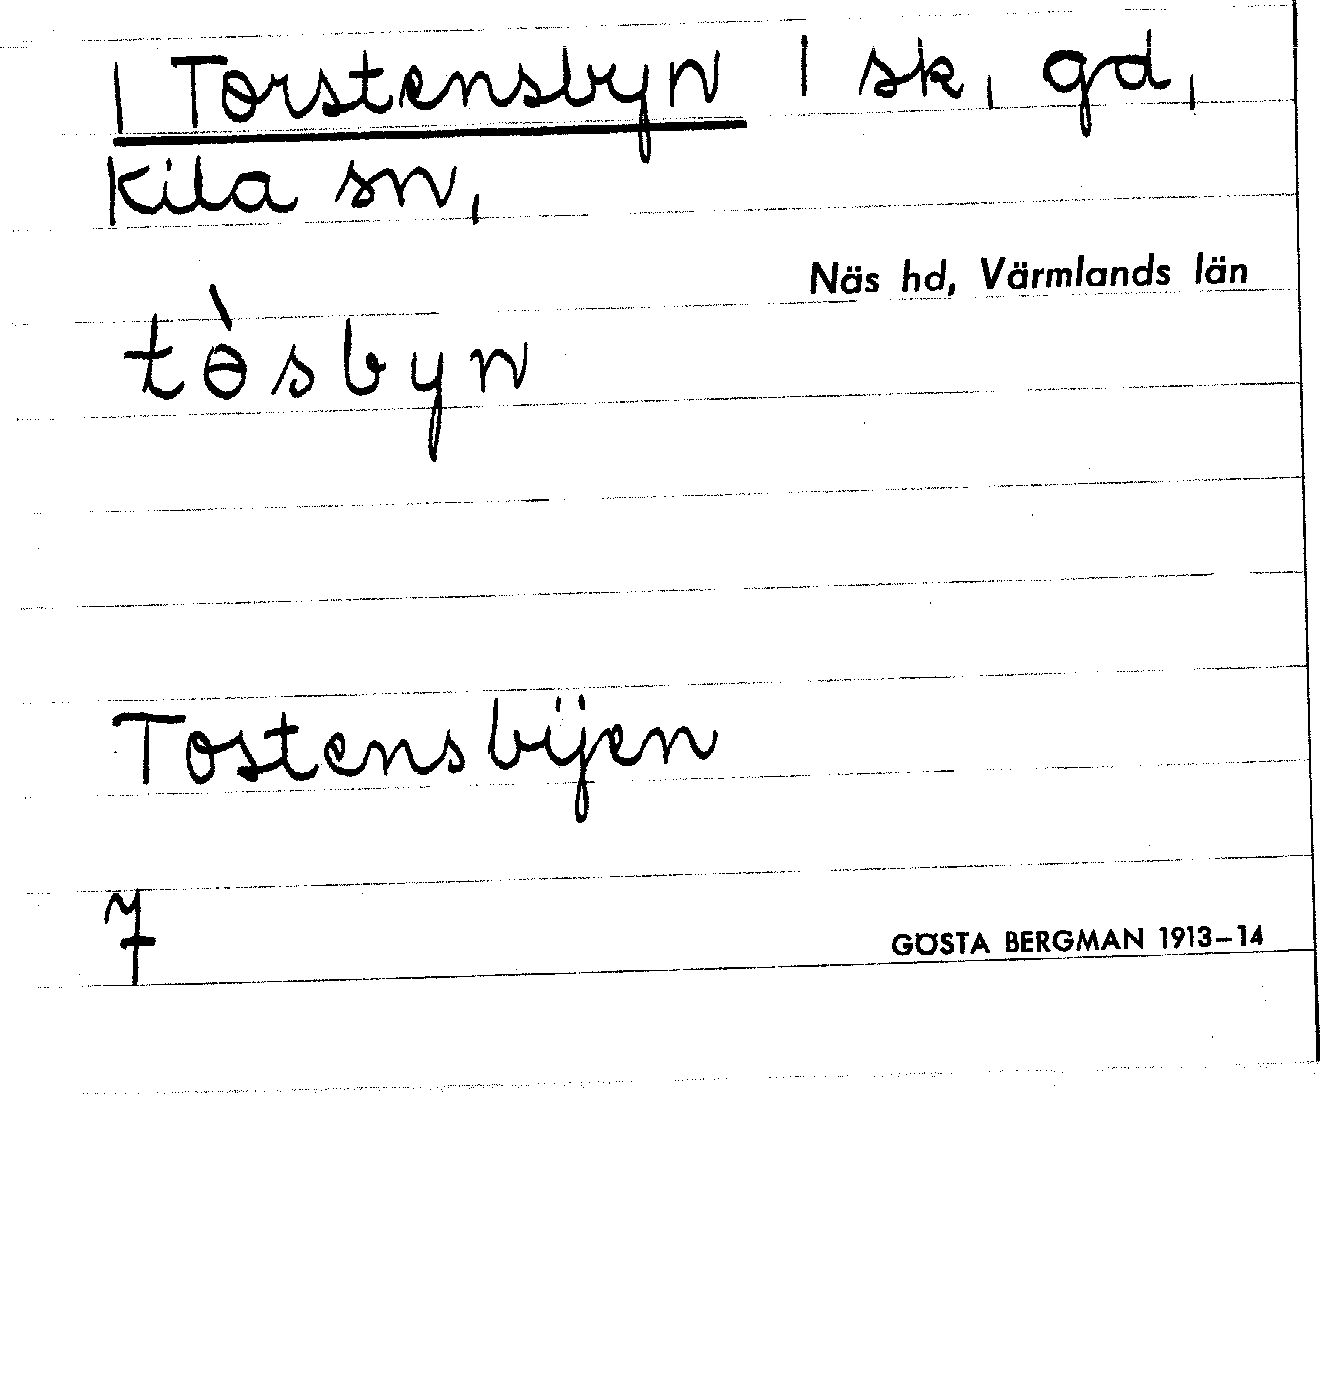 | Torstensbyn | sk, gd,
Kila sn,
Näs hd, Värmlands län
tɵ̀sbyn
Tostensbÿen
7
GÖSTA BERGMAN 1913–14